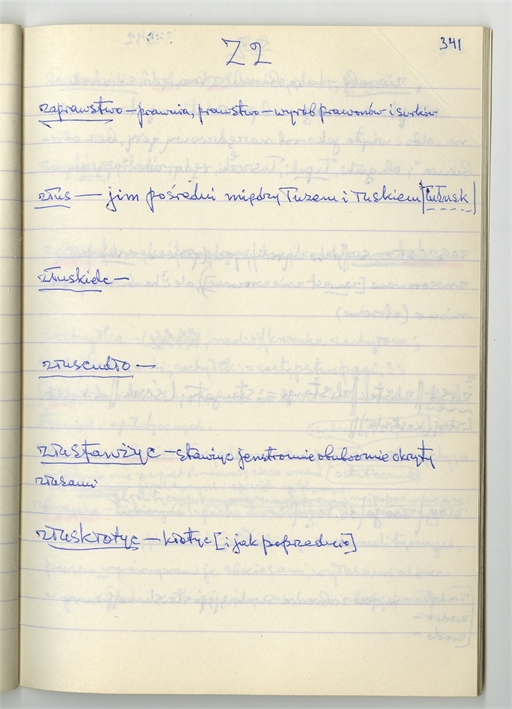 Z2
341
zaprawstwo – prawnia, prawstwo – wyrób prawonów i surków
złus — jim pośredni między Tuzem i Tuskiem [łuzusk]
złuskidc –
złuscudło –
złustawżyc – stawżyc jenstromie obuboomie okryty
złusami
złuskłotyc – kłotyc [i jak poprzednio]